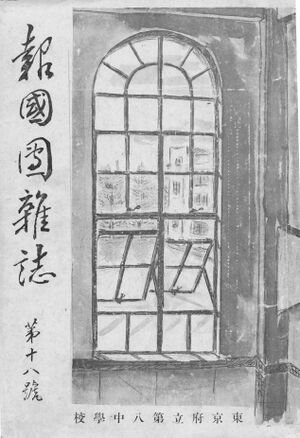 報國團雜誌
第十八號
東京府立第八中學校